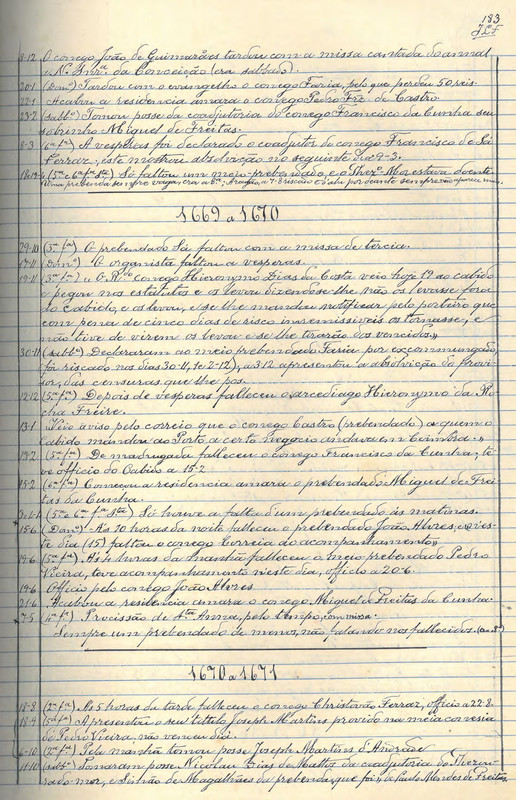 183
JLF
8-12 O conego João de Guimarães tardou com a missa cantada do annal
e Nª Snrª da Conceição (era sabbado).
20-1 (Domº) Tardou com o evangelho o conego Faria, pelo que perdeu 50 reis
22-1 Acabou a residencia amara o conego Pedro Fre. de Castro
23-2 (sabbº) Tomou posse da coadjutoria do conego Francisco da Cunha seu
sobrinho Miguel de Freitas.
8-3 (6ª fª) A vesperas foi declarado o coadjutor do conego Francisco de Sá
Ferraz; este mostrou absolvição no seguinte dia 9-3.
(5ª e 6ª fª stª) Só faltou um meio-prebendado, e o Thesº Mor estava doente
1669 a 1670
29-10 (3ª fª) O prebendado Sá faltou com a missa de tercia.
17-11 (Domº) O organista faltou a vesperas.
19-11 (3ª fª) "O Rdo conego Hieronymo Dias da Costa veio hoze 19 ao cabido
e pegou nos estatutos e os levou dizendose lhe não os levasse fora
do Cabido, e os levou, e se lhe mandou notificar pelo porteiro que
com pena de cinco dias de risco irremissiveis os tornasse, e
não live de virem os levou e se lhe tirarão dos vencidos."
30-11 (sabbº) Declararam ao meio prebendado Faria por excommungado,
foi riscado nos dias 30-11, 1 e 2-12), a 3-12 apresentou a absolvição do provi-
sor, das censuras que lhe pos.
12-12 (5ª fª) Depois de vesperas falleceu o arcediago Hieronymo da Ro
cha Freire.
13-1 "Veio aviso pelo correio que o conego Castro (prebendado) a quem o
Cabido mandou ao Porto a certo negocio andava em Coimbra."
13-2 (5ª fª) De madrugada falleceu o conego Francisco da Cunha, te
ve officio do Cabido a 15-2
15-2 Começou a residencia amara o prebendado Miguel de Frei
tas da Cunha.
3-4-4 (5ª e 6ª fª stª) Só houve a falta d'um prebendado ás matinas.
15-6 (Domº) - As 10 horas da noite falleceu o prebendado João Alvres, e neste
dia (15) faltou o conego Correia do acompanhamento"
19-6 (5ª fª) As 4 horas da manhã falleceu o meio prebendado Pedro
Vieira, teve acompanhamento neste dia, officio a 20-6.
19-6 Officio pelo conego João Alvres
21-6 Acabou a residencia amara o conego Miguel de Freitas da Cunha.
Procissão de Stª Anna, pelo tempo, com missa.
Sempre um prebendado de menos, não falando nos fallecidos.
1670 a 1671
18-8 (2ª fª) As 5 horas da tarde falleceu o conego Christovão Ferraz, officio a 22-8.
Apresentou o seu titulo Joseph Martins provido na meia conesia
de Pedro Vieira, não venceu dia.
6-10 (2ª fª) Pela manhã tomou posse Joseph Martins d'Andrade
11-10 (sabbº) Tomaram posse Nicolau Dias de Mattos da coadjutoria do Thezou-
rado-mor, e Simão de Magalhães da prebenda, que foi de Paulo Mendes de Freitas.